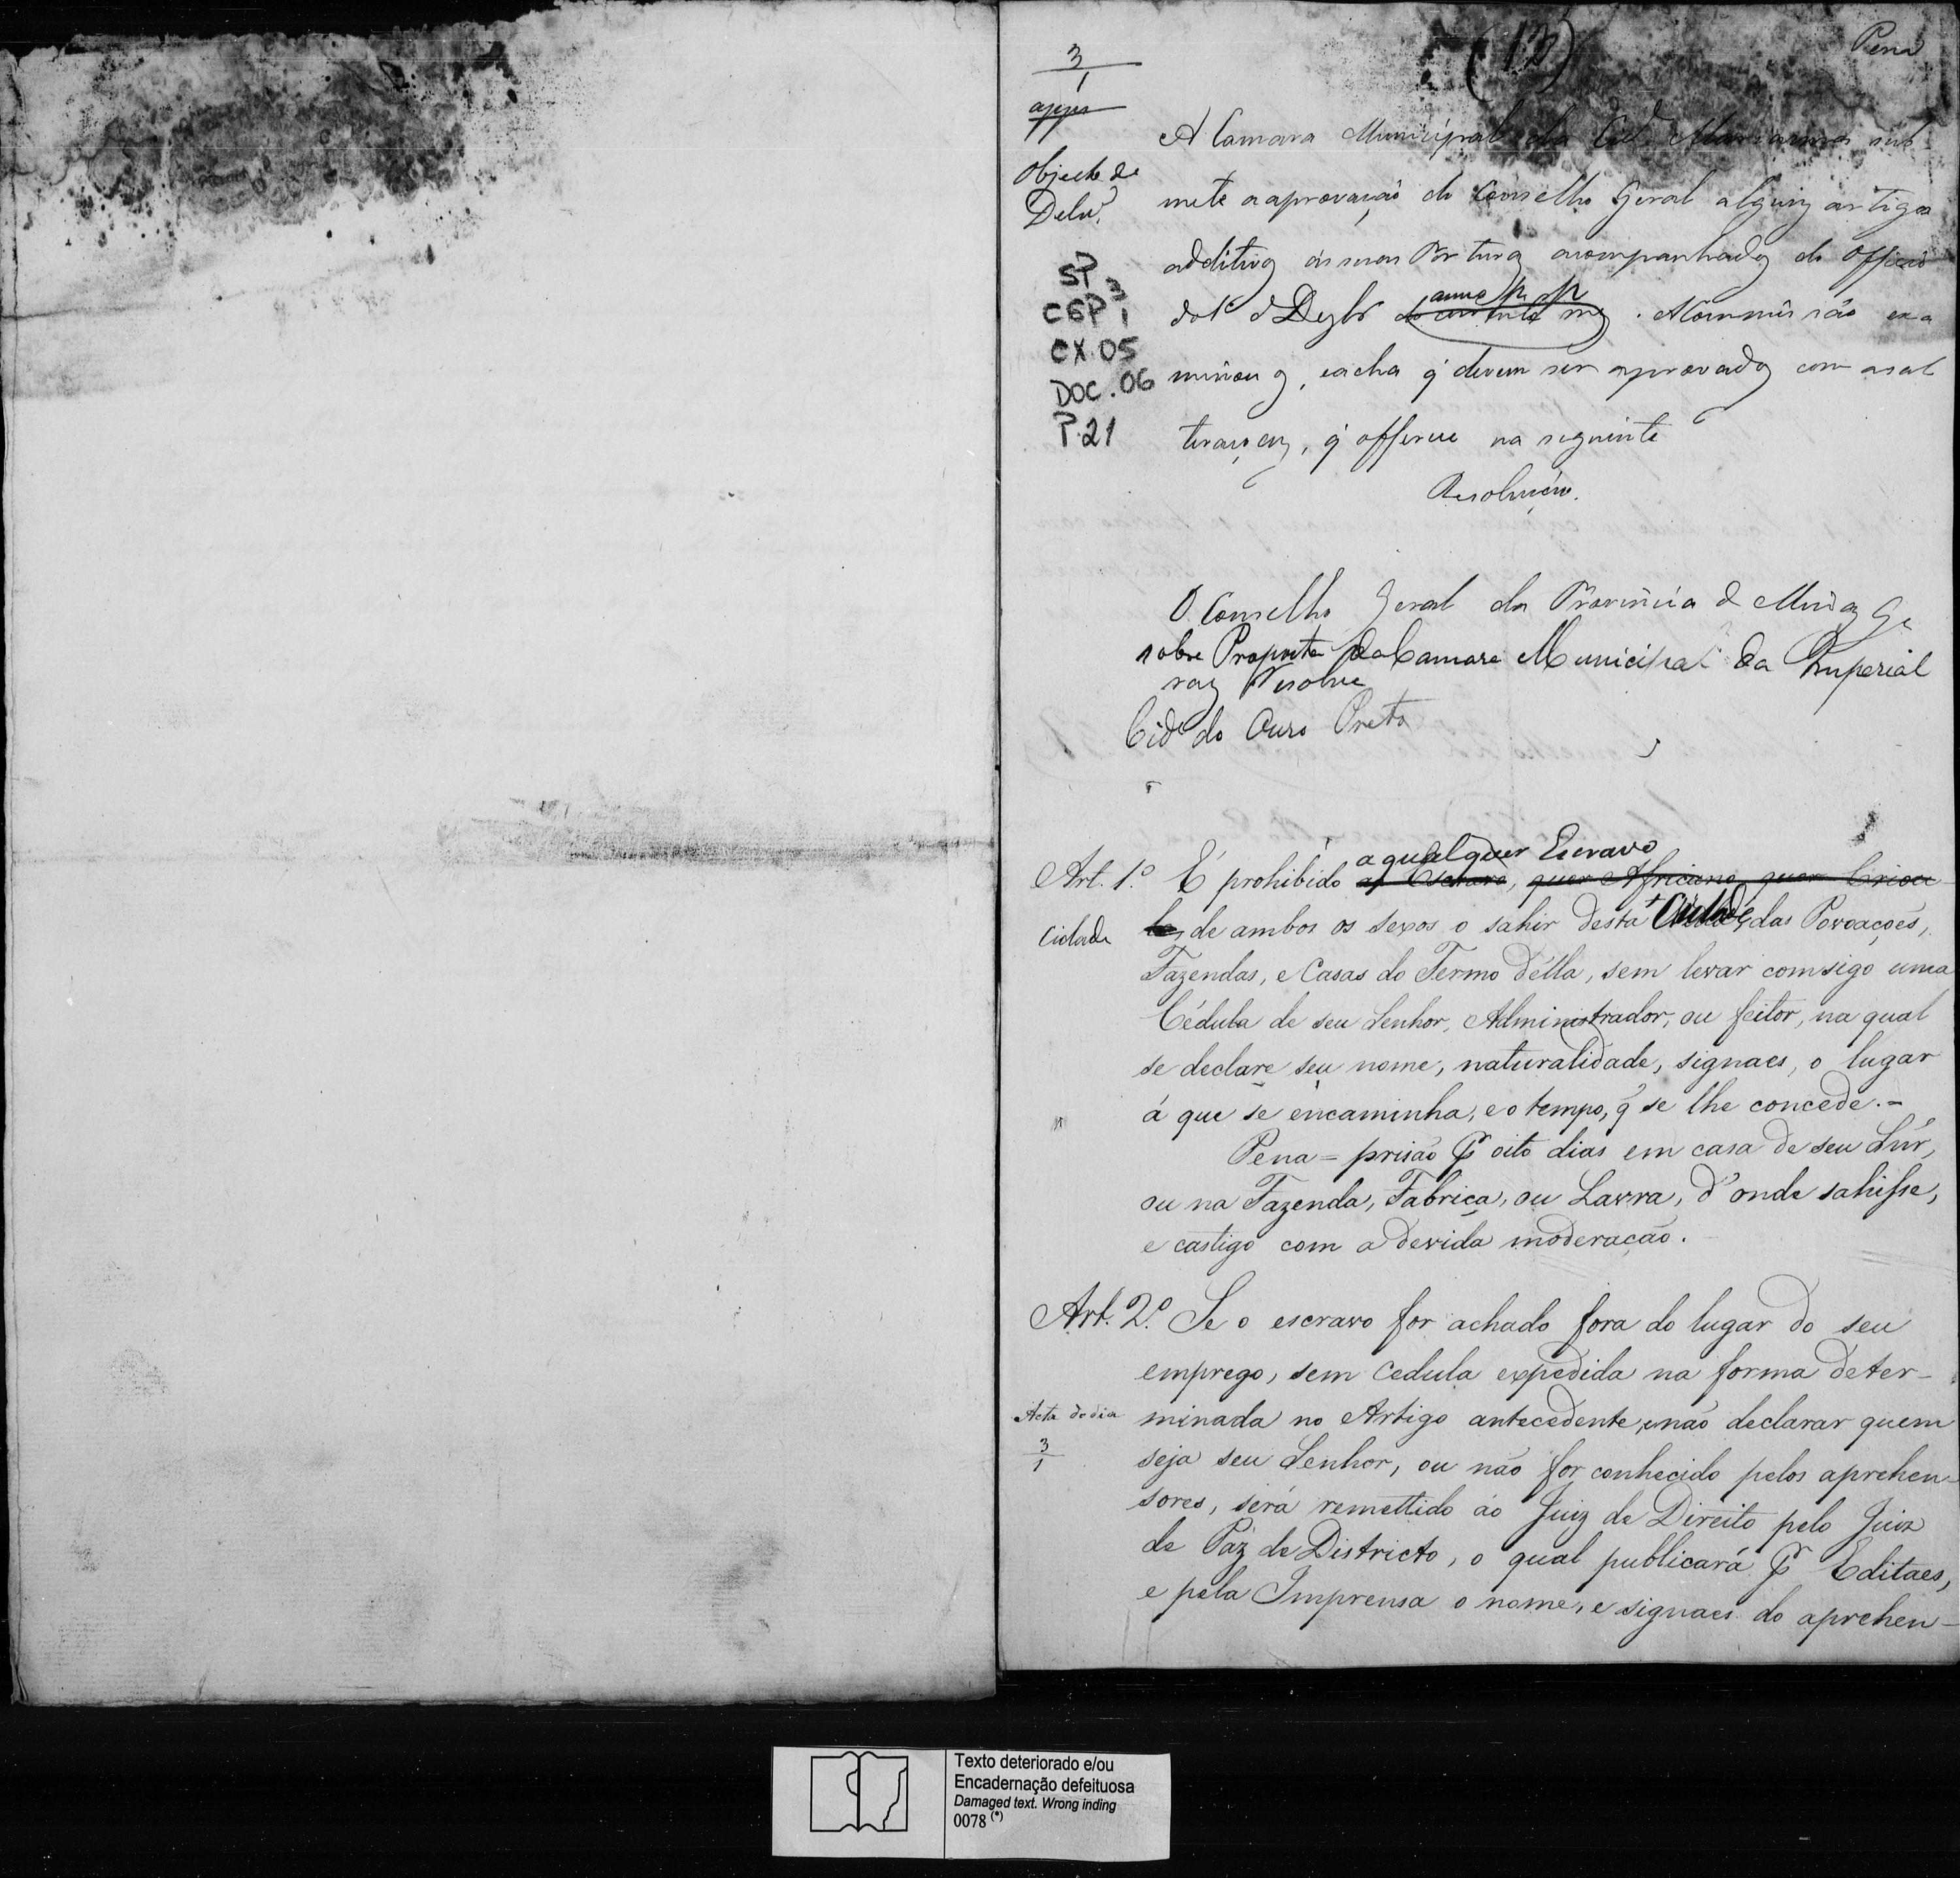 (13)
Pena
3
1
app
Objecto de
Delib.
SP
CGP 1 3
CX. 05
DOC. 06
P. 21
A Camara Municipal da Cid. Marianna sub-
mete a aprovação do Conselho Geral alguns artigos
additivos ás suas Posturas acompanhados do Officio
do 1º d Dezbr anno p. p. A Commissão exa
minou os, e acha q' devem ser aprovados com as al
teraçoens, q' offerece na seguinte
Resolução.
O Conselho Geral da Provincia de Minas Ge
sobre Proposta da Camara Municipal da Imperial
raes Resolve
Cide do Ouro Preto
a qualquer Escravo
Art. 1.º É prohibido os Escravos, quer Africanos, quer Criou
los, de ambos os sexos o sahir desta Cidade, das Povoações,
Cidade
Fazendas, e Casas do Termo d'ella, sem levar comsigo uma
Cédula de seu Senhor, Administrador, ou feitor, na qual
se declare seu nome, naturalidade, signaes, o lugar
á que se encaminha, e o tempo, q' se lhe concede.-
Pena = prisão Pr oito dias em casa de seu Snr,
ou na Fazenda, Fabrica, ou Lavra, d'onde sahisse,
e castigo com a devida moderação.
Art. 2.º Se o escravo for achado fora do lugar do seu
emprego, sem cedula expedida na forma deter-
minada no Artigo antecedente, e não declarar quem
Acta do dia
3
1
seja seu Senhor, ou não for conhecido pelos aprehen-
sores, será remettido ao Juiz de Direito pelo Juiz
de Paz de Districto, o qual publicará Pr Editaes,
e pela Imprensa o nome, e signaes do aprehen-
Texto deteriorado e/ou
Encadernação defeituosa
Damaged text. Wrong inding
0078 (*)